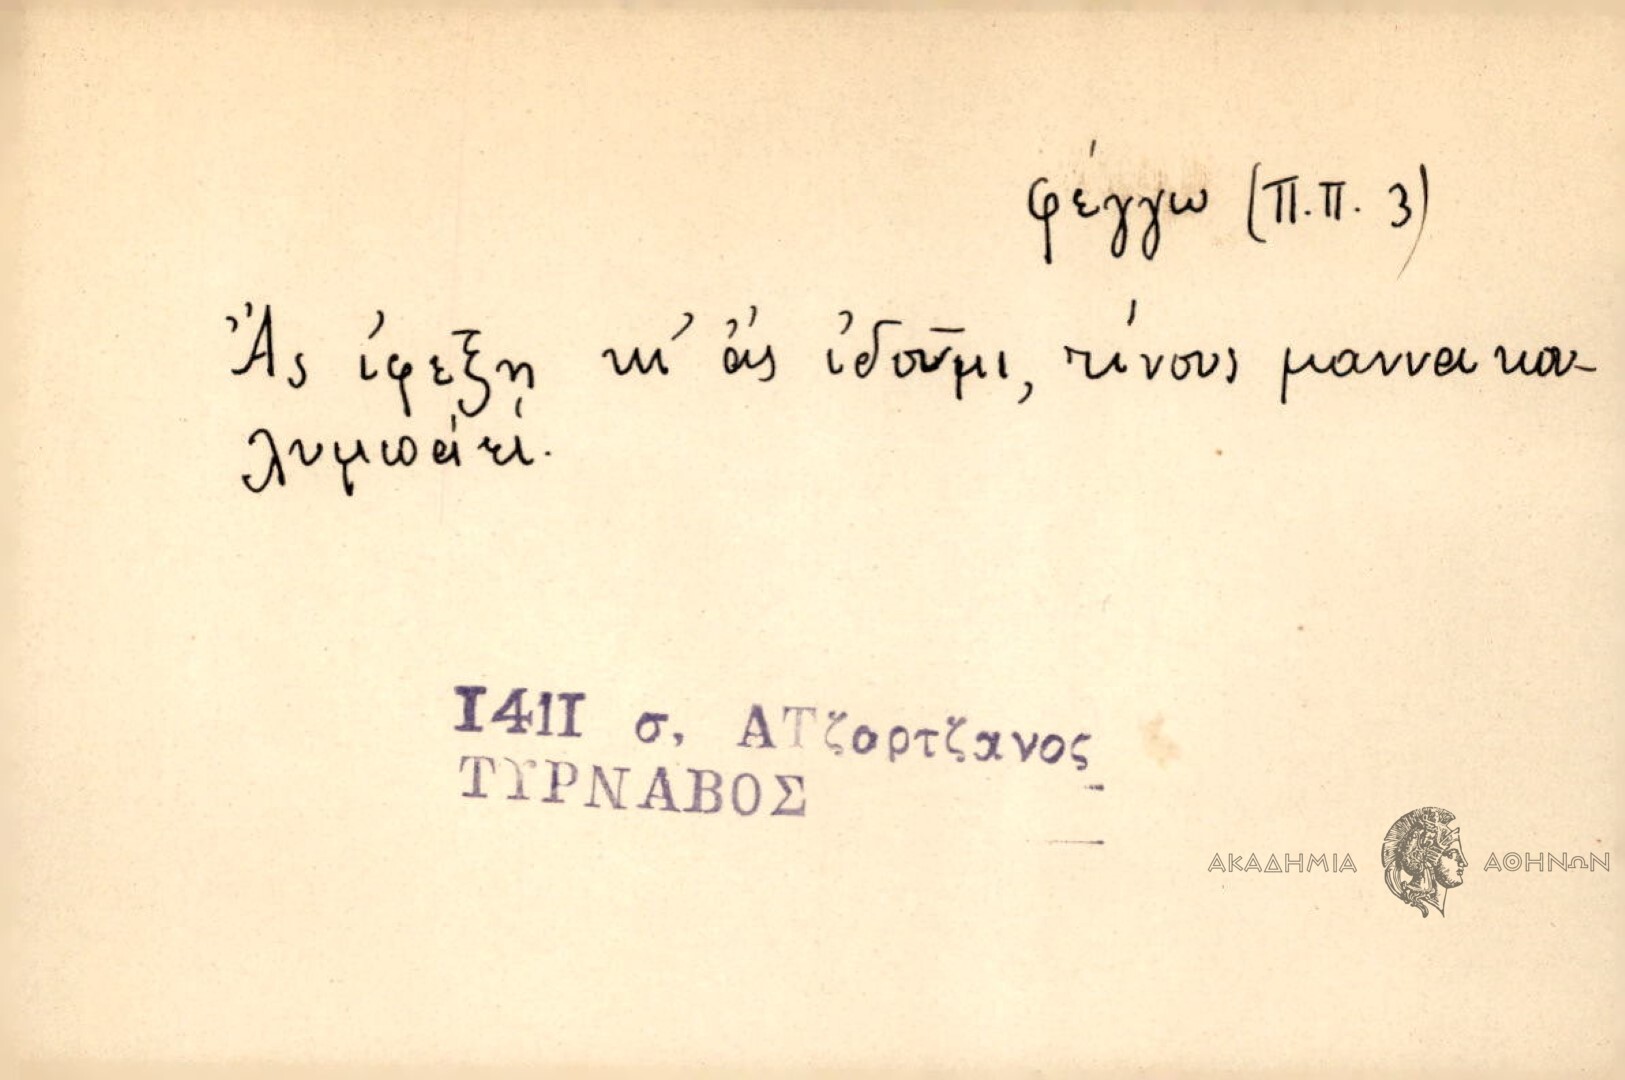 φέγγω (Π.Π. 3)
Ἄς ἰφέξῃ κι' ἄς ἰδοῦμι, τίνους μάννα κα-
λυμπάει.
1411 σ, ΑΤζαρτζανος
ΤΥΡΝΑΒΟΣ
ΑΚΑΔΗΜΙΑ ΑΘΗΝΩΝ